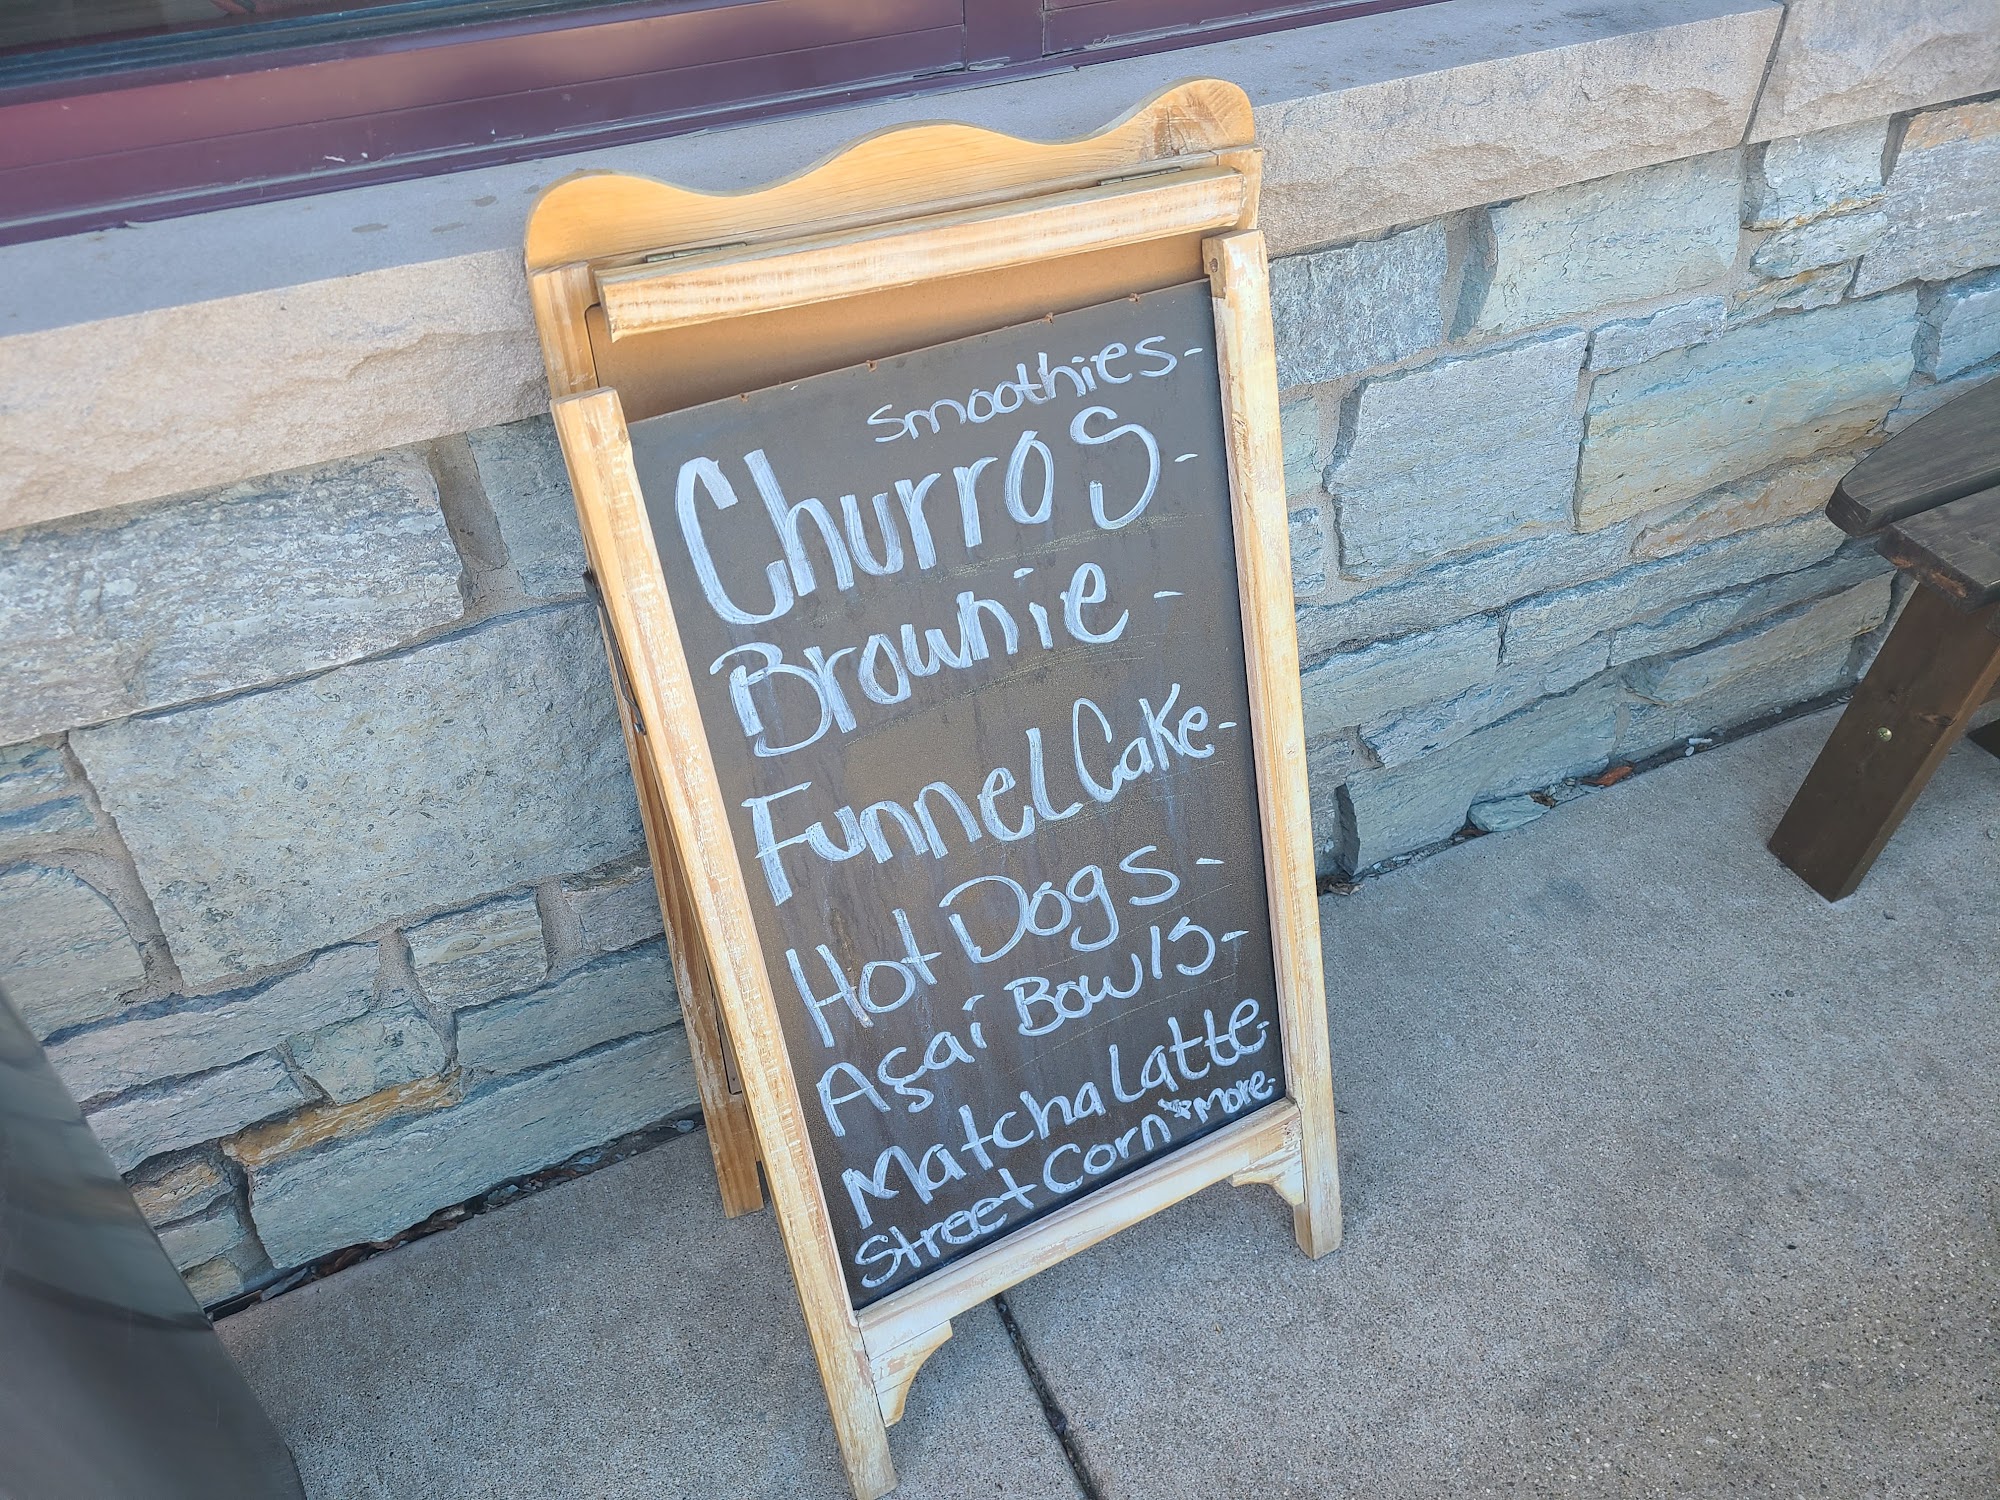 Smoothies -
Churros -
Brownie -
Funnel Cake -
Hot Dogs -
Açaí Bowls -
Matcha Latte -
Street Corn * more -